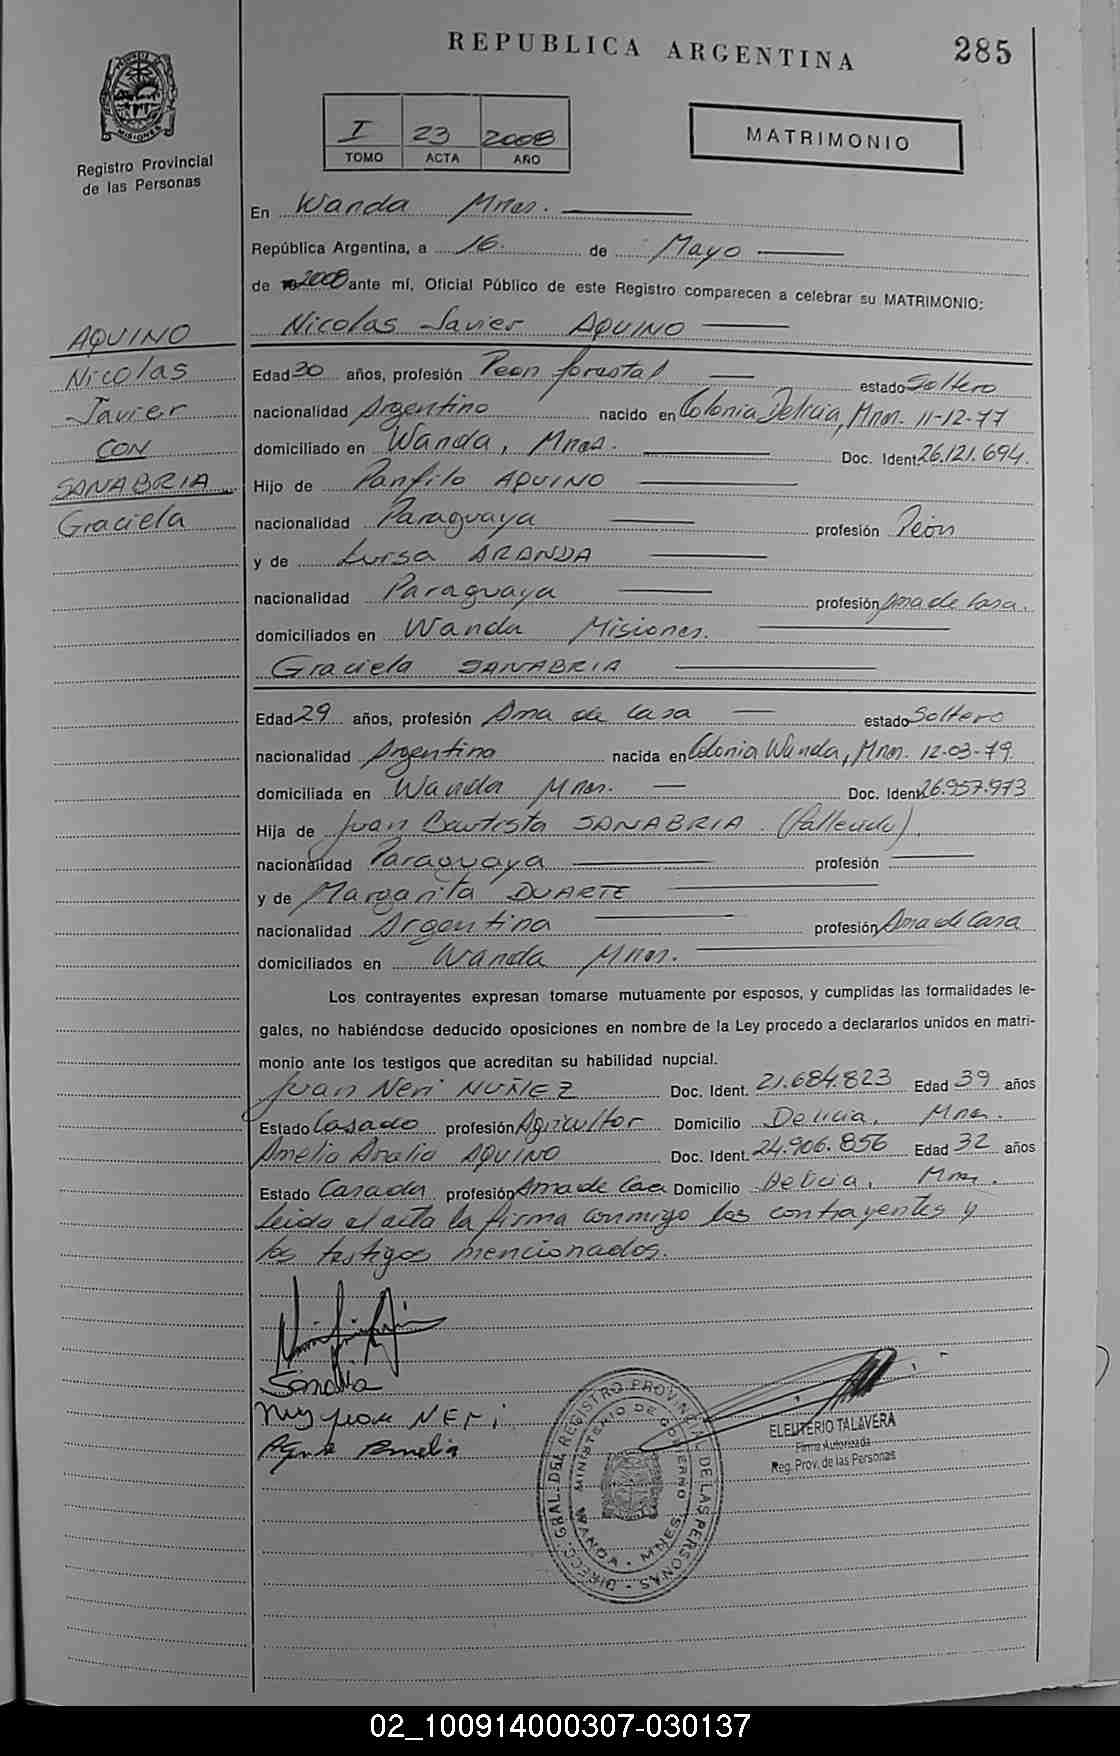 REPUBLICA ARGENTINA
285
MISIONES
Registro Provincial
de las Personas
I 23 2008
TOMO ACTA AÑO
MATRIMONIO
AQUINO
Nicolas
Javier
CON
SANABRIA
Graciela
En Wanda Mnes.
República Argentina, a 16 de Mayo
de 2008 ante mí, Oficial Público de este Registro comparecen a celebrar su MATRIMONIO:
Nicolas Javier AQUINO
Edad 30 años, profesión Peon forestal estado Soltero
nacionalidad Argentino nacido en Colonia Delicia, Mnes. 11-12-77
domiciliado en Wanda, Mnes. Doc. Ident. 26.121.694.
Hijo de Panfilo AQUINO
nacionalidad Paraguaya profesión Peón
y de Luisa ARANDA
nacionalidad Paraguaya profesión Ama de Casa.
domiciliados en Wanda Misiones.
Graciela SANABRIA
Edad 29 años, profesión Ama de casa estado Soltero
nacionalidad Argentina nacida en Colonia Wanda, Mnes. 12-03-79.
domiciliada en Wanda Mnes. Doc. Ident. 26.957.973
Hija de Juan Bautista SANABRIA (Fallecido)
nacionalidad Paraguaya profesión
y de Margarita DUARTE
nacionalidad Argentina profesión Ama de Casa
domiciliados en Wanda Mnes.
Los contrayentes expresan tomarse mutuamente por esposos, y cumplidas las formalidades le-
gales, no habiéndose deducido oposiciones en nombre de la Ley procedo a declararlos unidos en matri-
monio ante los testigos que acreditan su habilidad nupcial.
Juan Neri NUÑEZ Doc. Ident. 21.684.823 Edad 39 años
Estado Casado profesión Agricultor Domicilio Delicia, Mnes.
Amelia Analia AQUINO Doc. Ident. 24.906.856 Edad 32 años
Estado Casada profesión Ama de Casa Domicilio Delicia, Mnes.
Leida el acta la firma conmigo los contrayentes y
los testigos mencionados.
NERI
Amelia
DIRECC. GRAL. DEL REGISTRO PROVINCIAL DE LAS PERSONAS
MINISTERIO DE GOBIERNO
WANDA - MNES.
ELEUTERIO TALAVERA
Firma Autorizada
Reg. Prov. de las Personas
02_100914000307-030137